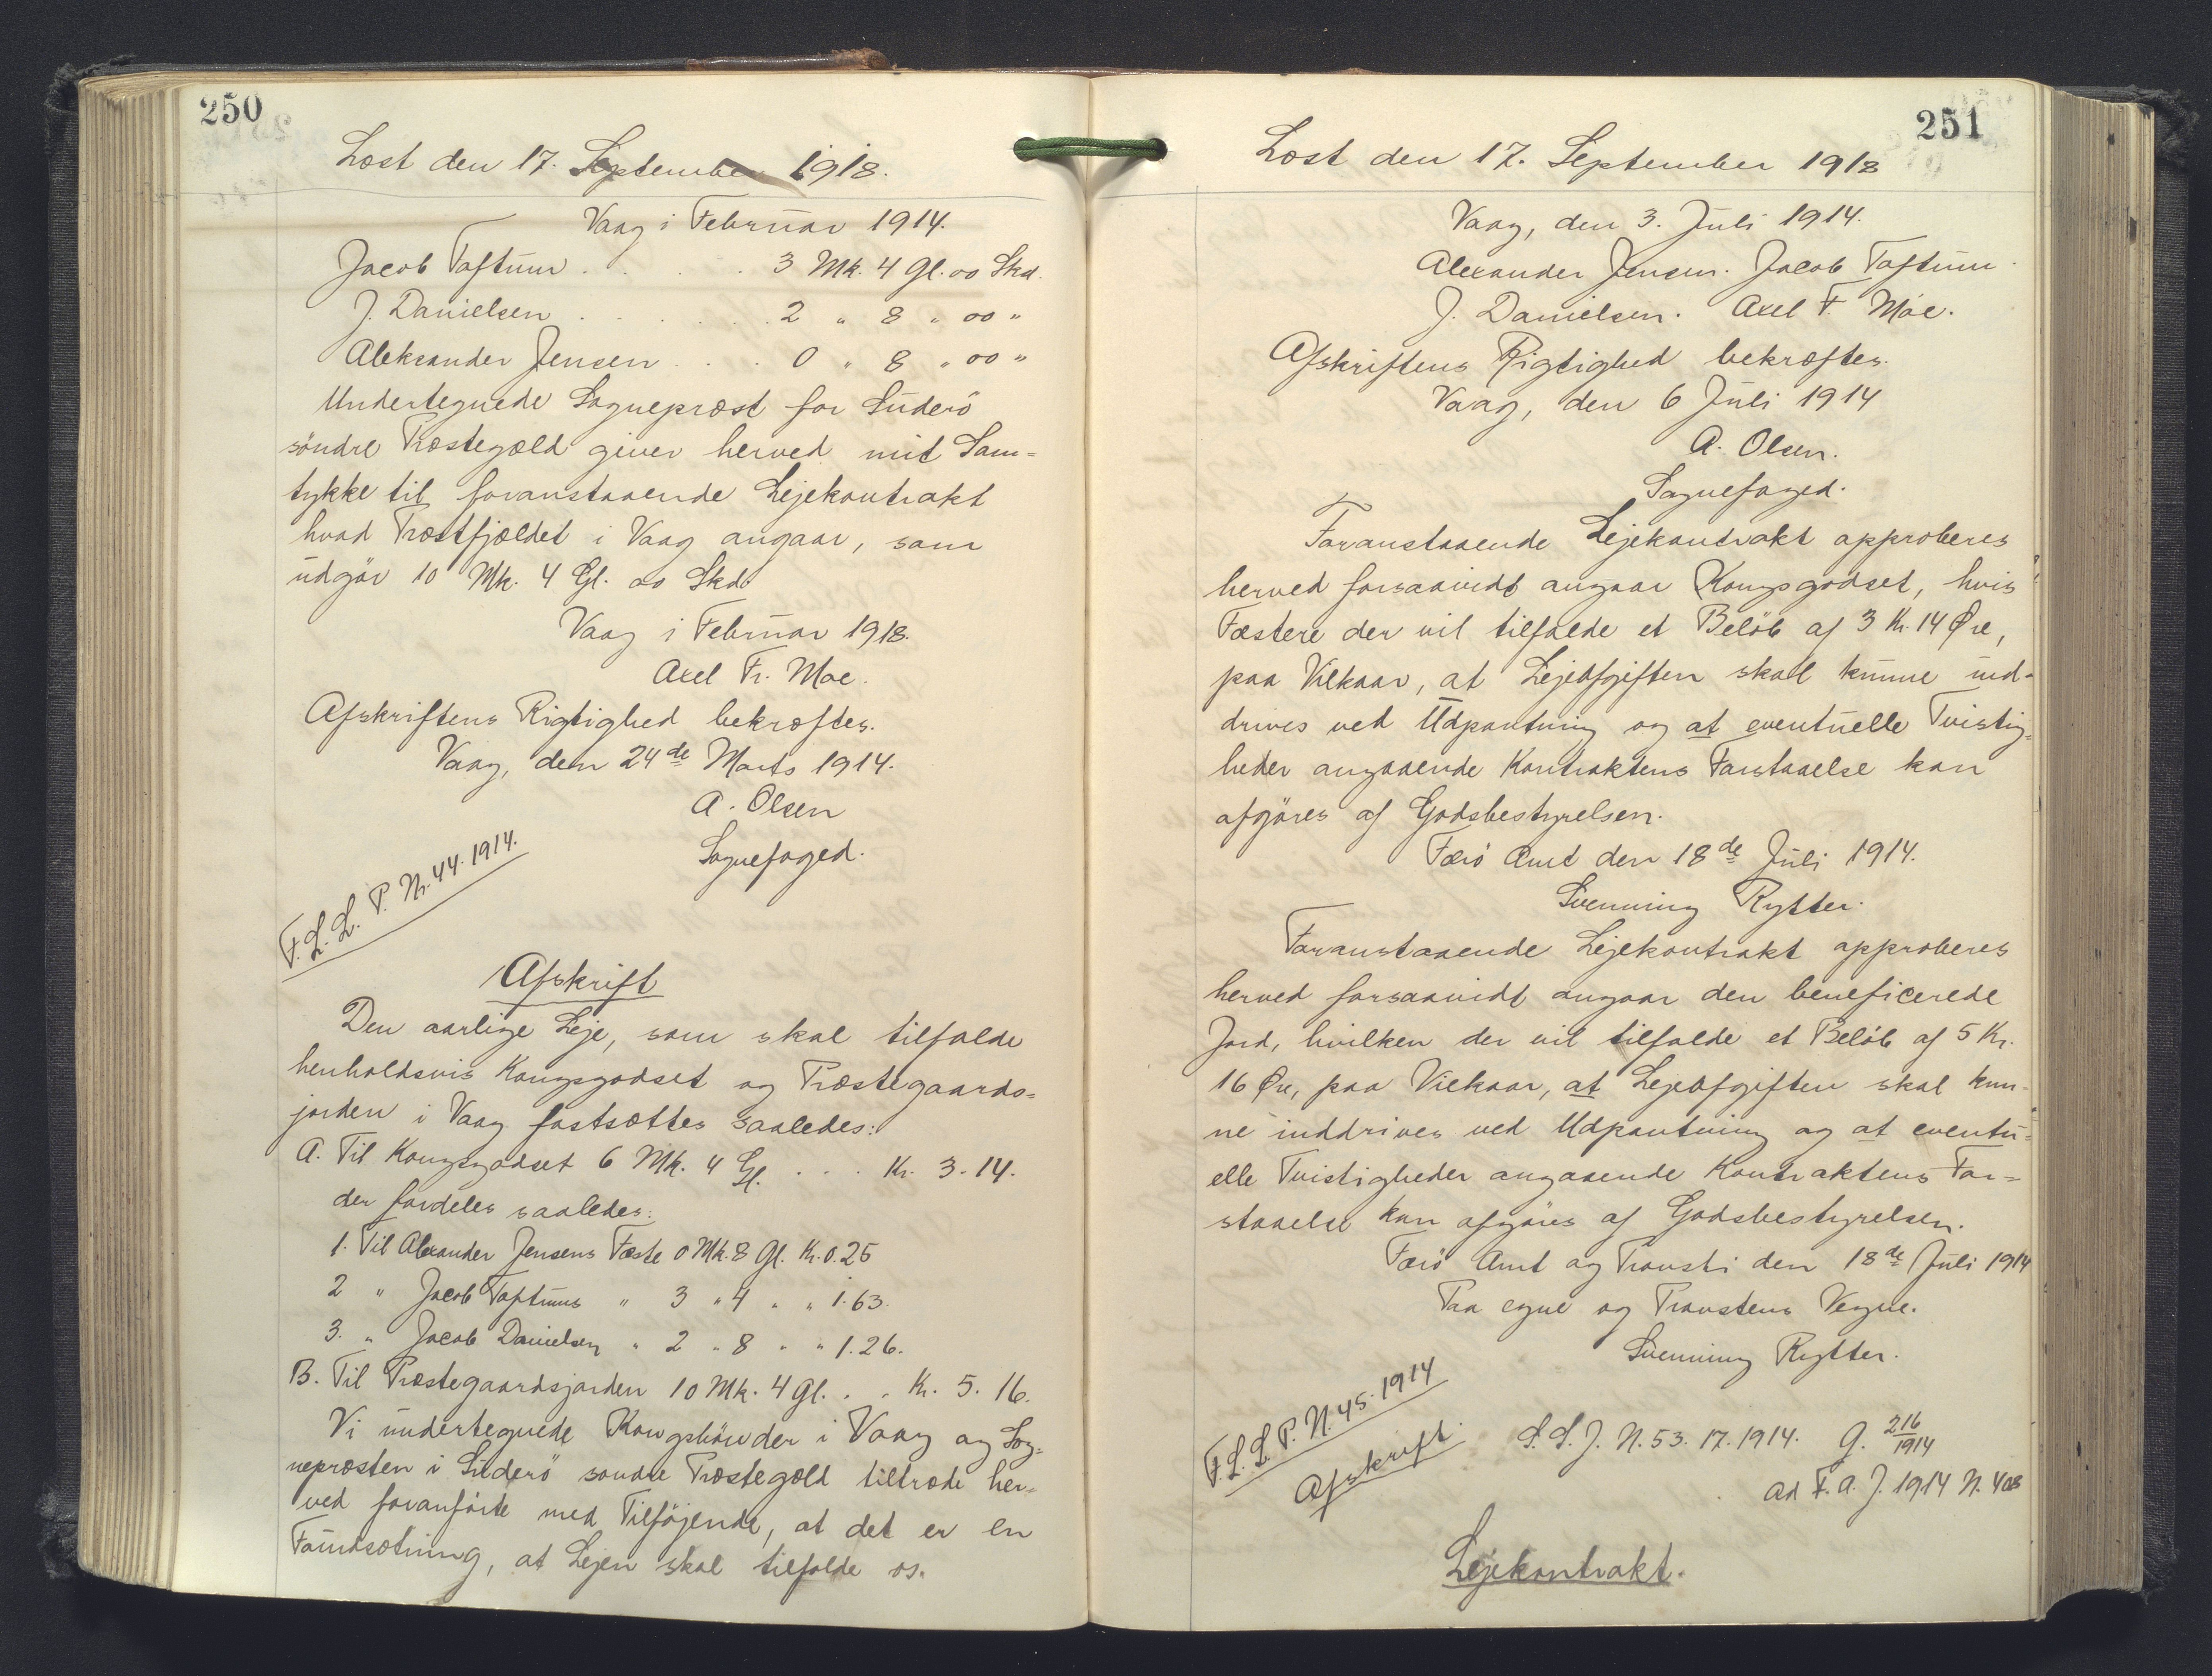 250
Læst den 17. September 1918.
Vaag i Februar 1914.
Jacob Toftum . . . . . 3 Mk. 4 Gl. oo Skd.
J. Danielsen . . . . . . 2 " 8 " oo "
Aleksander Jensen . . . 0 " 8 " oo "
Undertegnede Sognepræst for Suderö
söndre Præstegæld giver herved mit Sam=
tykke til foranstaaende Lejekontrakt
hvad Præstfjældet i Vaag angaar, som
udgör 10 Mk. 4 Gl. oo Skd.
Vaag i Februar 1918.
Axel Fr. Moe.
Afskriftens Rigtighed bekræftes.
Vaag, den 24de Marts 1914.
A. Olsen
Sognefoged.
F. L. L. P. Nr. 44. 1914.
Afskrift
Den aarlige Leje, som skal tilfalde
henholdsvis Kongsgodset og Præstegaards=
jorden i Vaag fastsættes saaledes:
A. Til Kongsgodset 6 Mk. 4 Gl. . . . Kr. 3.14.
der fordeles saaledes:
1. Til Alexander Jensens Fæste 0 Mk. 8 Gl. Kr. 0.25
2 " Jacob Toftums " 3 " 4 " " 1.63.
3. " Jacob Danielsen " 2 " 8 " " 1.26.
B. Til Præstegaardsjorden 10 Mk. 4 Gl. . . Kr. 5.16.
Vi undertegnede Kongsbönder i Vaag og Sog=
nepræsten i Suderö söndre Præstegæld tiltræde her=
ved foranförte med Tilföjende, at det er en
Forudsætning, at Lejen skal tilfalde os.
251
Læst den 17. September 1918
Vaag, den 3. Juli 1914.
Alexander Jensen. Jacob Toftum.
J. Danielsen. Axel F. Moe.
Afskriftens Rigtighed bekræftes.
Vaag, den 6 Juli 1914
A. Olsen.
Sognefoged.
Foranstaaende Lejekontrakt approberes
herved forsaavidt angaar Kongsgodset, hvis
Fæstere der vil tilfalde et Belöb af 3 Kr. 14 Øre,
paa Vilkaar, at Lejeafgiften skal kunne ind-
drives ved Udpantning og at eventuelle Tvistig=
heder angaaende Kontraktens Forstaaelse kan
afgöres af Godsbestyrelsen.
Færö Amt den 18de Juli 1914.
Svenning Rytter.
Foranstaaende Lejekontrakt approberes
herved forsaavidt angaar den beneficerede
Jord, hvilken der vil tilfalde et Belöb af 5 Kr.
16 Øre, paa Vilkaar, at Lejeafgiften skal kun-
ne inddrives ved Udpantning og at eventu=
elle Tvistigheder angaaende Kontraktens For=
staaelse kan afgöres af Godsbestyrelsen.
Færö Amt og Provsti den 18de Juli 1914
Paa egne og Provstens Vegne.
Svenning Rytter.
F. L. L. P. N. 45. 1914
Afskrift
S. S. J. N. 53. 17. 1914. G. 216/1914
ad F. A. J. 1914 N. 408
Lejekontrakt.